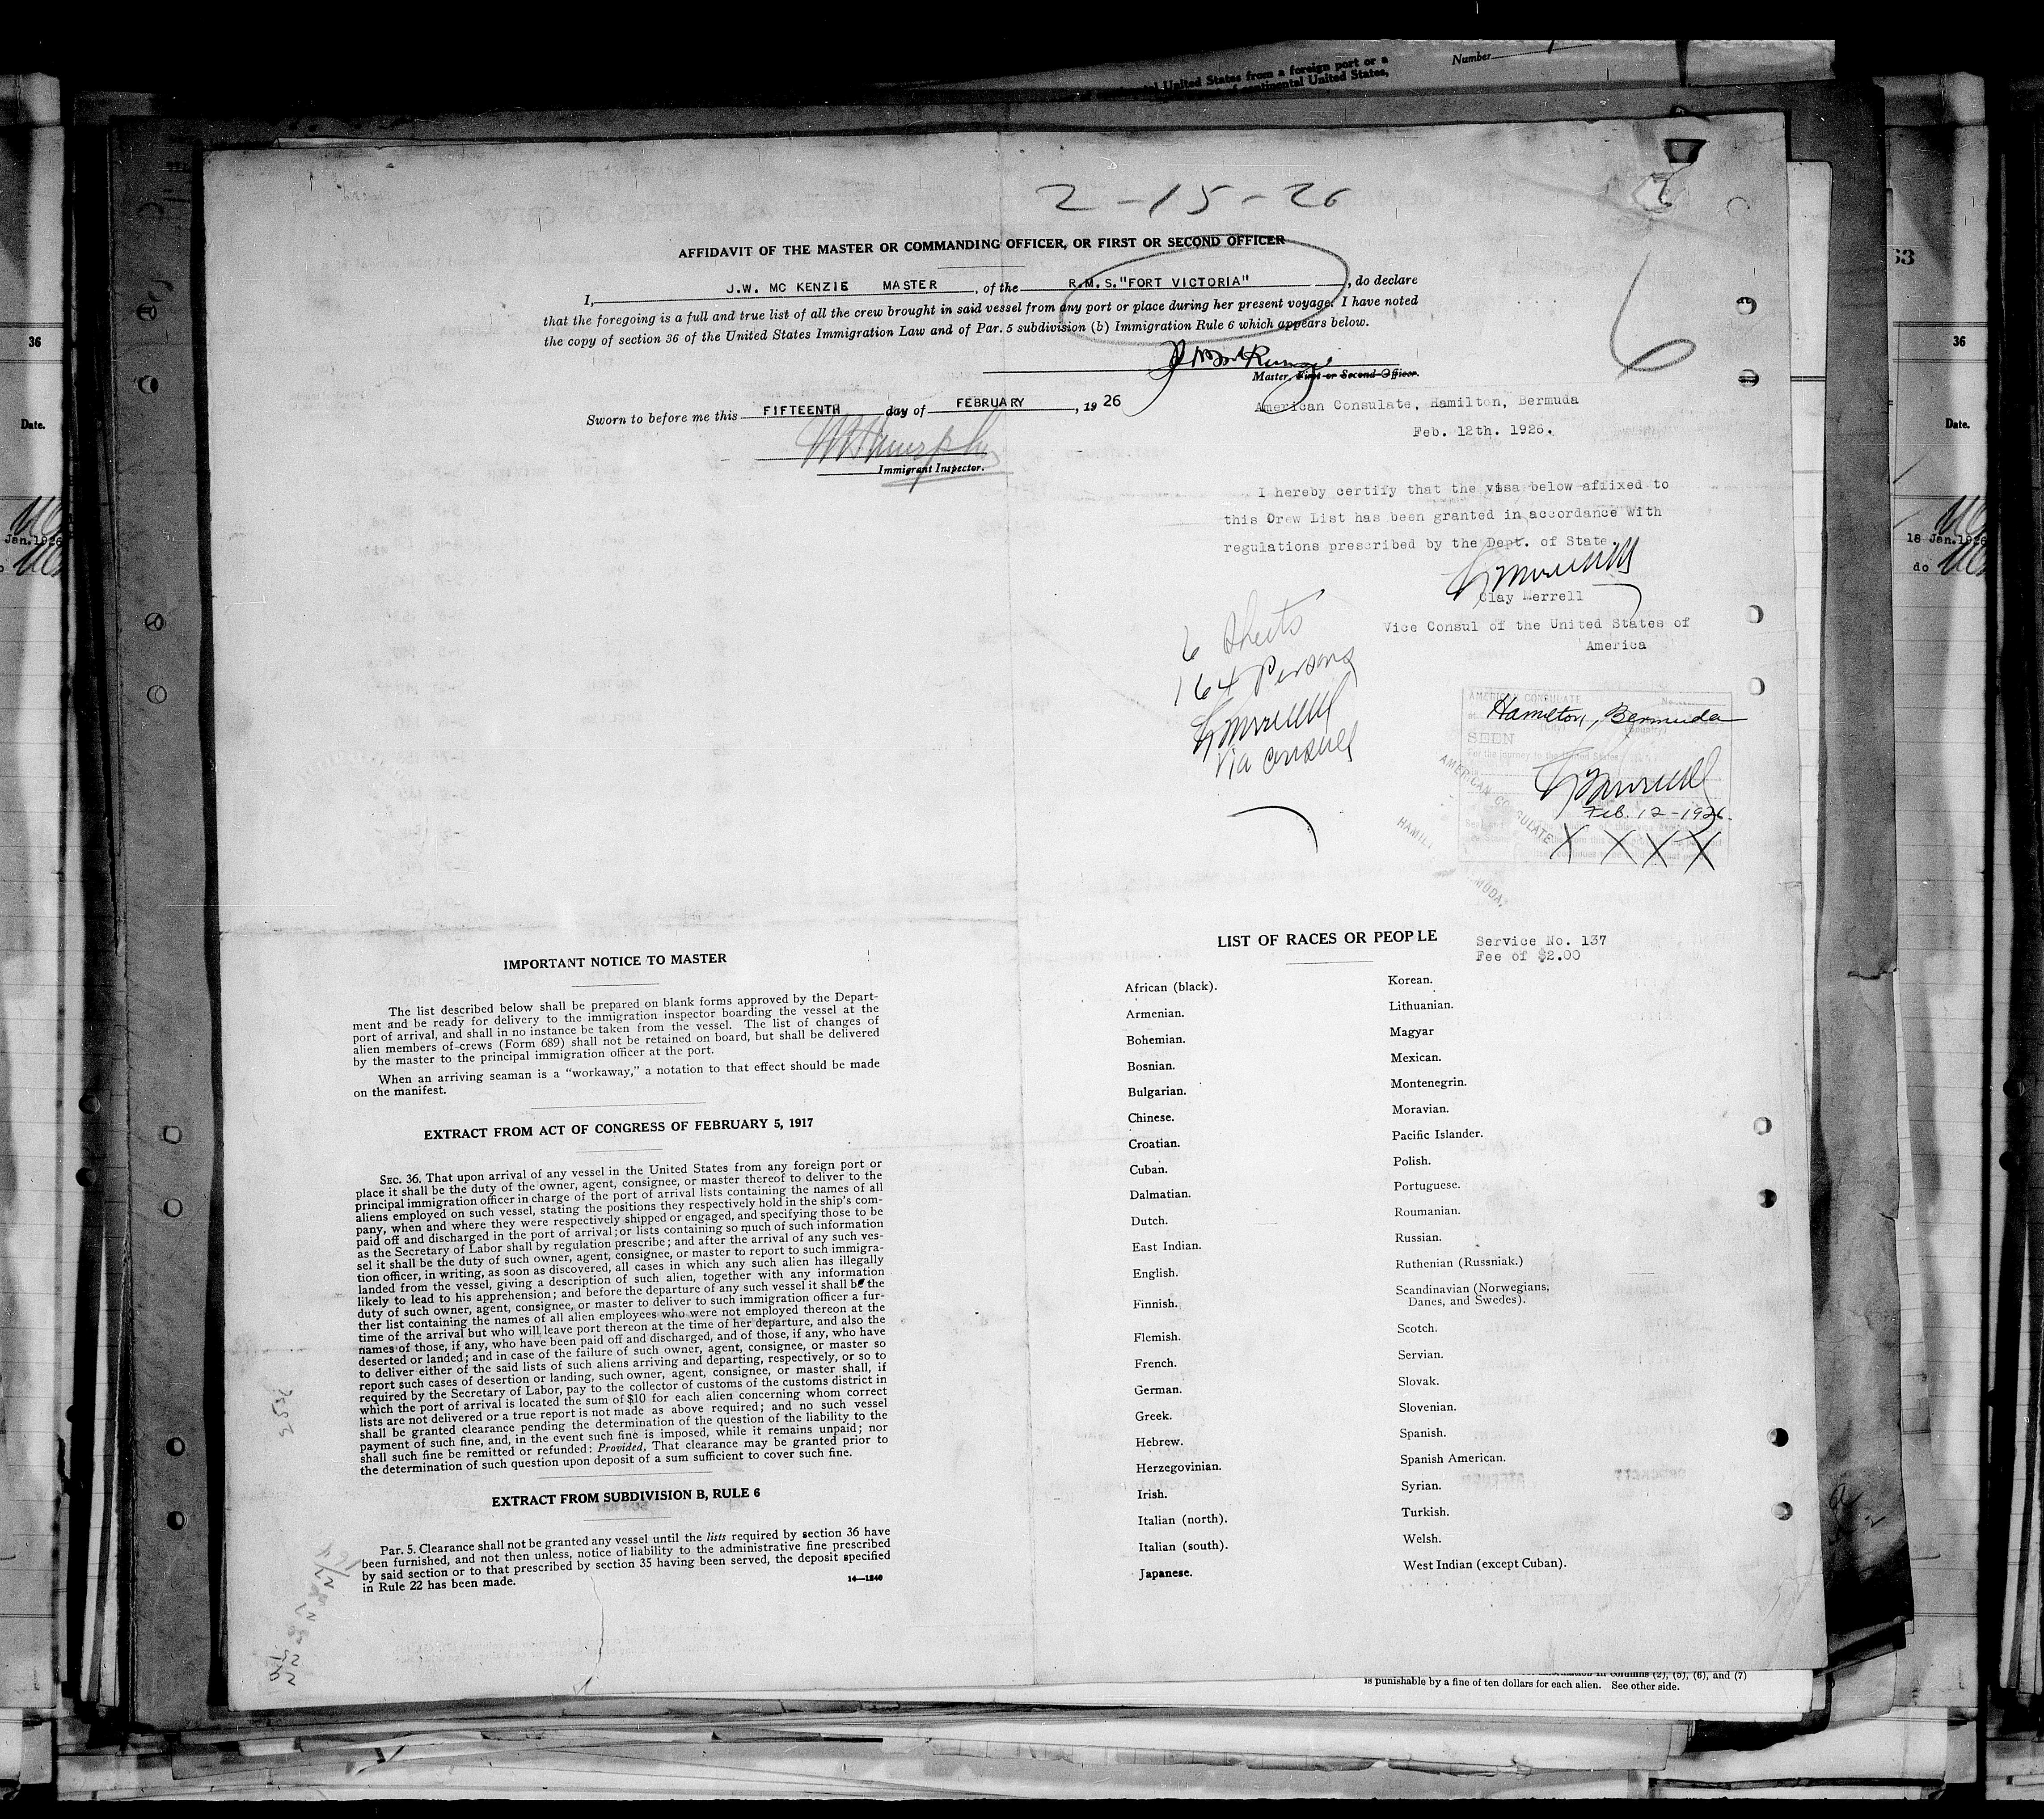 Number
United States from a foreign port or a
of continental United States,
2-15-26
6
AFFIDAVIT OF THE MASTER OR COMMANDING OFFICER, OR FIRST OR SECOND OFFICER
I, J.W. MC KENZIE MASTER, of the R.M.S."FORT VICTORIA", do declare
that the foregoing is a full and true list of all the crew brought in said vessel from any port or place during her present voyage. I have noted
the copy of section 36 of the United States Immigration Law and of Par. 5 subdivision (b) Immigration Rule 6 which appears below.
Master, First or Second Officer.
Sworn to before me this FIFTEENTH day of FEBRUARY, 1926
Immigrant Inspector.
American Consulate, Hamilton, Bermuda
Feb. 12th. 1926.
I hereby certify that the visa below affixed to
this Crew List has been granted in accordance with
regulations prescribed by the Dept. of State.
Clay Merrell
Vice Consul of the United States of
America
6 Sheets
164 Persons
AMERICAN CONSULATE
No.
Hamilton, Bermuda
SEEN
For the journey to the United States
Feb. 12-1926.
X X X X
AMERICAN CONSULATE
Service No. 137
Fee of $2.00
IMPORTANT NOTICE TO MASTER
The list described below shall be prepared on blank forms approved by the Depart-
ment and be ready for delivery to the immigration inspector boarding the vessel at the
port of arrival, and shall in no instance be taken from the vessel. The list of changes of
alien members of crews (Form 689) shall not be retained on board, but shall be delivered
by the master to the principal immigration officer at the port.
When an arriving seaman is a "workaway," a notation to that effect should be made
on the manifest.
EXTRACT FROM ACT OF CONGRESS OF FEBRUARY 5, 1917
SEC. 36. That upon arrival of any vessel in the United States from any foreign port or
place it shall be the duty of the owner, agent, consignee, or master thereof to deliver to the
principal immigration officer in charge of the port of arrival lists containing the names of all
aliens employed on such vessel, stating the positions they respectively hold in the ship's com-
pany, when and where they were respectively shipped or engaged, and specifying those to be
paid off and discharged in the port of arrival; or lists containing so much of such information
as the Secretary of Labor shall by regulation prescribe; and after the arrival of any such ves-
sel it shall be the duty of such owner, agent, consignee, or master to report to such immigra-
tion officer, in writing, as soon as discovered, all cases in which any such alien has illegally
landed from the vessel, giving a description of such alien, together with any information
likely to lead to his apprehension; and before the departure of any such vessel it shall be the
duty of such owner, agent, consignee, or master to deliver to such immigration officer a fur-
ther list containing the names of all alien employees who were not employed thereon at the
time of the arrival but who will leave port thereon at the time of her departure, and also the
names of those, if any, who have been paid off and discharged, and of those, if any, who have
deserted or landed; and in case of the failure of such owner, agent, consignee, or master so
to deliver either of the said lists of such aliens arriving and departing, respectively, or so to
report such cases of desertion or landing, such owner, agent, consignee, or master shall, if
required by the Secretary of Labor, pay to the collector of customs of the customs district in
which the port of arrival is located the sum of $10 for each alien concerning whom correct
lists are not delivered or a true report is not made as above required; and no such vessel
shall be granted clearance pending the determination of the question of the liability to the
payment of such fine, and, in the event such fine is imposed, while it remains unpaid; nor
shall such fine be remitted or refunded: Provided, That clearance may be granted prior to
the determination of such question upon deposit of a sum sufficient to cover such fine.
EXTRACT FROM SUBDIVISION B, RULE 6
Par. 5. Clearance shall not be granted any vessel until the lists required by section 36 have
been furnished, and not then unless, notice of liability to the administrative fine prescribed
by said section or to that prescribed by section 35 having been served, the deposit specified
in Rule 22 has been made.
14—1240
LIST OF RACES OR PEOPLE
African (black).
Armenian.
Bohemian.
Bosnian.
Bulgarian.
Chinese.
Croatian.
Cuban.
Dalmatian.
Dutch.
East Indian.
English.
Finnish.
Flemish.
French.
German.
Greek.
Hebrew.
Herzegovinian.
Irish.
Italian (north).
Italian (south).
Japanese.
Korean.
Lithuanian.
Magyar
Mexican.
Montenegrin.
Moravian.
Pacific Islander.
Polish.
Portuguese.
Roumanian.
Russian.
Ruthenian (Russniak.)
Scandinavian (Norwegians,
Danes, and Swedes).
Scotch.
Servian.
Slovak.
Slovenian.
Spanish.
Spanish American.
Syrian.
Turkish.
Welsh.
West Indian (except Cuban).
columns (2), (5), (6), and (7)
is punishable by a fine of ten dollars for each alien. See other side.
36
Date.
Jan. 1926
36
Date.
18 Jan. 1926
do